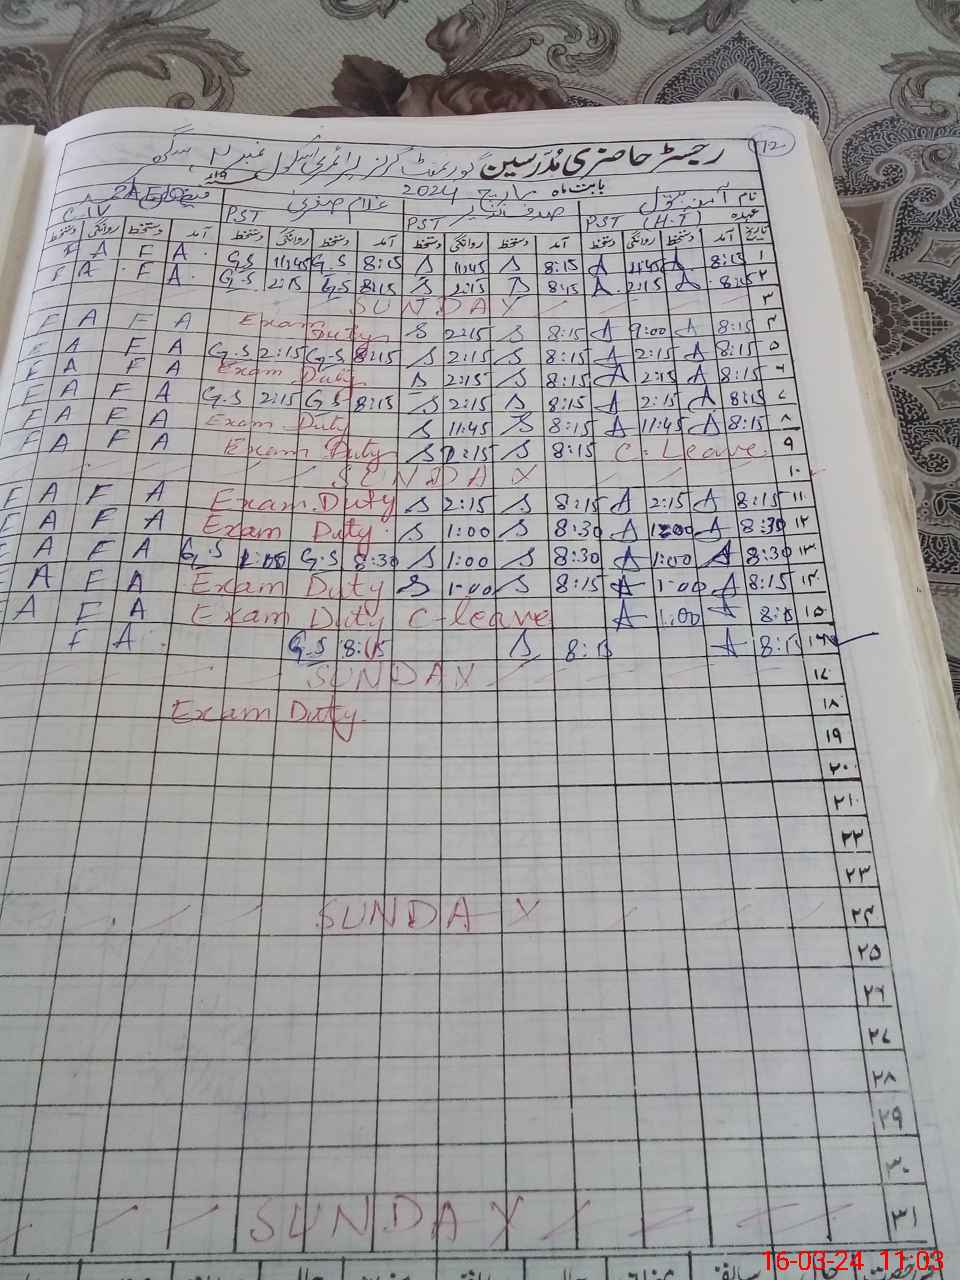 172
رجسٹر حاضری مُدرسین گورنمنٹ گرلز پرائمری سکول نمبر ۲
بابت ماہ مارچ 2024
نام آمنہ بتول صدف غلام صغریٰ
عہدہ PST (H.T) PST PST C-IV
تاریخ آمد دستخط روانگی دستخط آمد دستخط روانگی دستخط آمد دستخط روانگی دستخط آمد دستخط روانگی دستخط
F A F A G.S 11:45 G.S 8:15 S 11:45 S 8:15 A 11:45 A 8:15 ۱
F A F A G.S 2:15 G.S 8:15 S 2:15 S 8:15 A 2:15 A 8:15 ۲
SUNDAY ۳
F A F A Exam Duty S 2:15 S 8:15 A 9:00 A 8:15 ۴
F A F A G.S 2:15 G.S 8:15 S 2:15 S 8:15 A 2:15 A 8:15 ۵
F A F A Exam Duty S 2:15 S 8:15 A 2:15 A 8:15 ۶
F A F A G.S 2:15 G.S 8:15 S 2:15 S 8:15 A 2:15 A 8:15 ۷
F A F A Exam Duty S 11:45 S 8:15 A 11:45 A 8:15 ۸
F A F A Exam Duty S 2:15 S 8:15 C-Leave ۹
SUNDAY ۱۰
F A F A Exam Duty S 2:15 S 8:15 A 2:15 A 8:15 ۱۱
F A F A Exam Duty S 1:00 S 8:30 A 1:00 A 8:30 ۱۲
F A F A G.S 1:00 G.S 8:30 S 1:00 S 8:30 A 1:00 A 8:30 ۱۳
F A F A Exam Duty S 1-00 S 8:15 A 1-00 A 8:15 ۱۴
A F A Exam Duty C-leave A 1:00 A 8:15 ۱۵
F A G.S 8:15 S 8:15 A 8:15 ۱۶
SUNDAY ۱۷
Exam Duty. ۱۸
۱۹
۲۰
۲۱
۲۲
۲۳
SUNDAY ۲۴
۲۵
۲۶
۲۷
۲۸
۲۹
۳۰
SUNDAY ۳۱
16-03-24 11:03